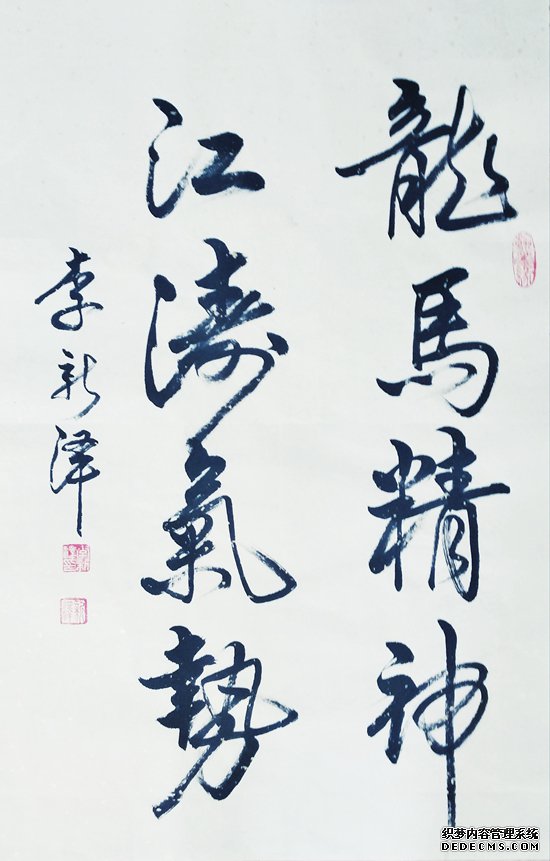 龍馬精神
江濤氣勢
李新泽
织梦内容管理系统
DEDECMS.COM